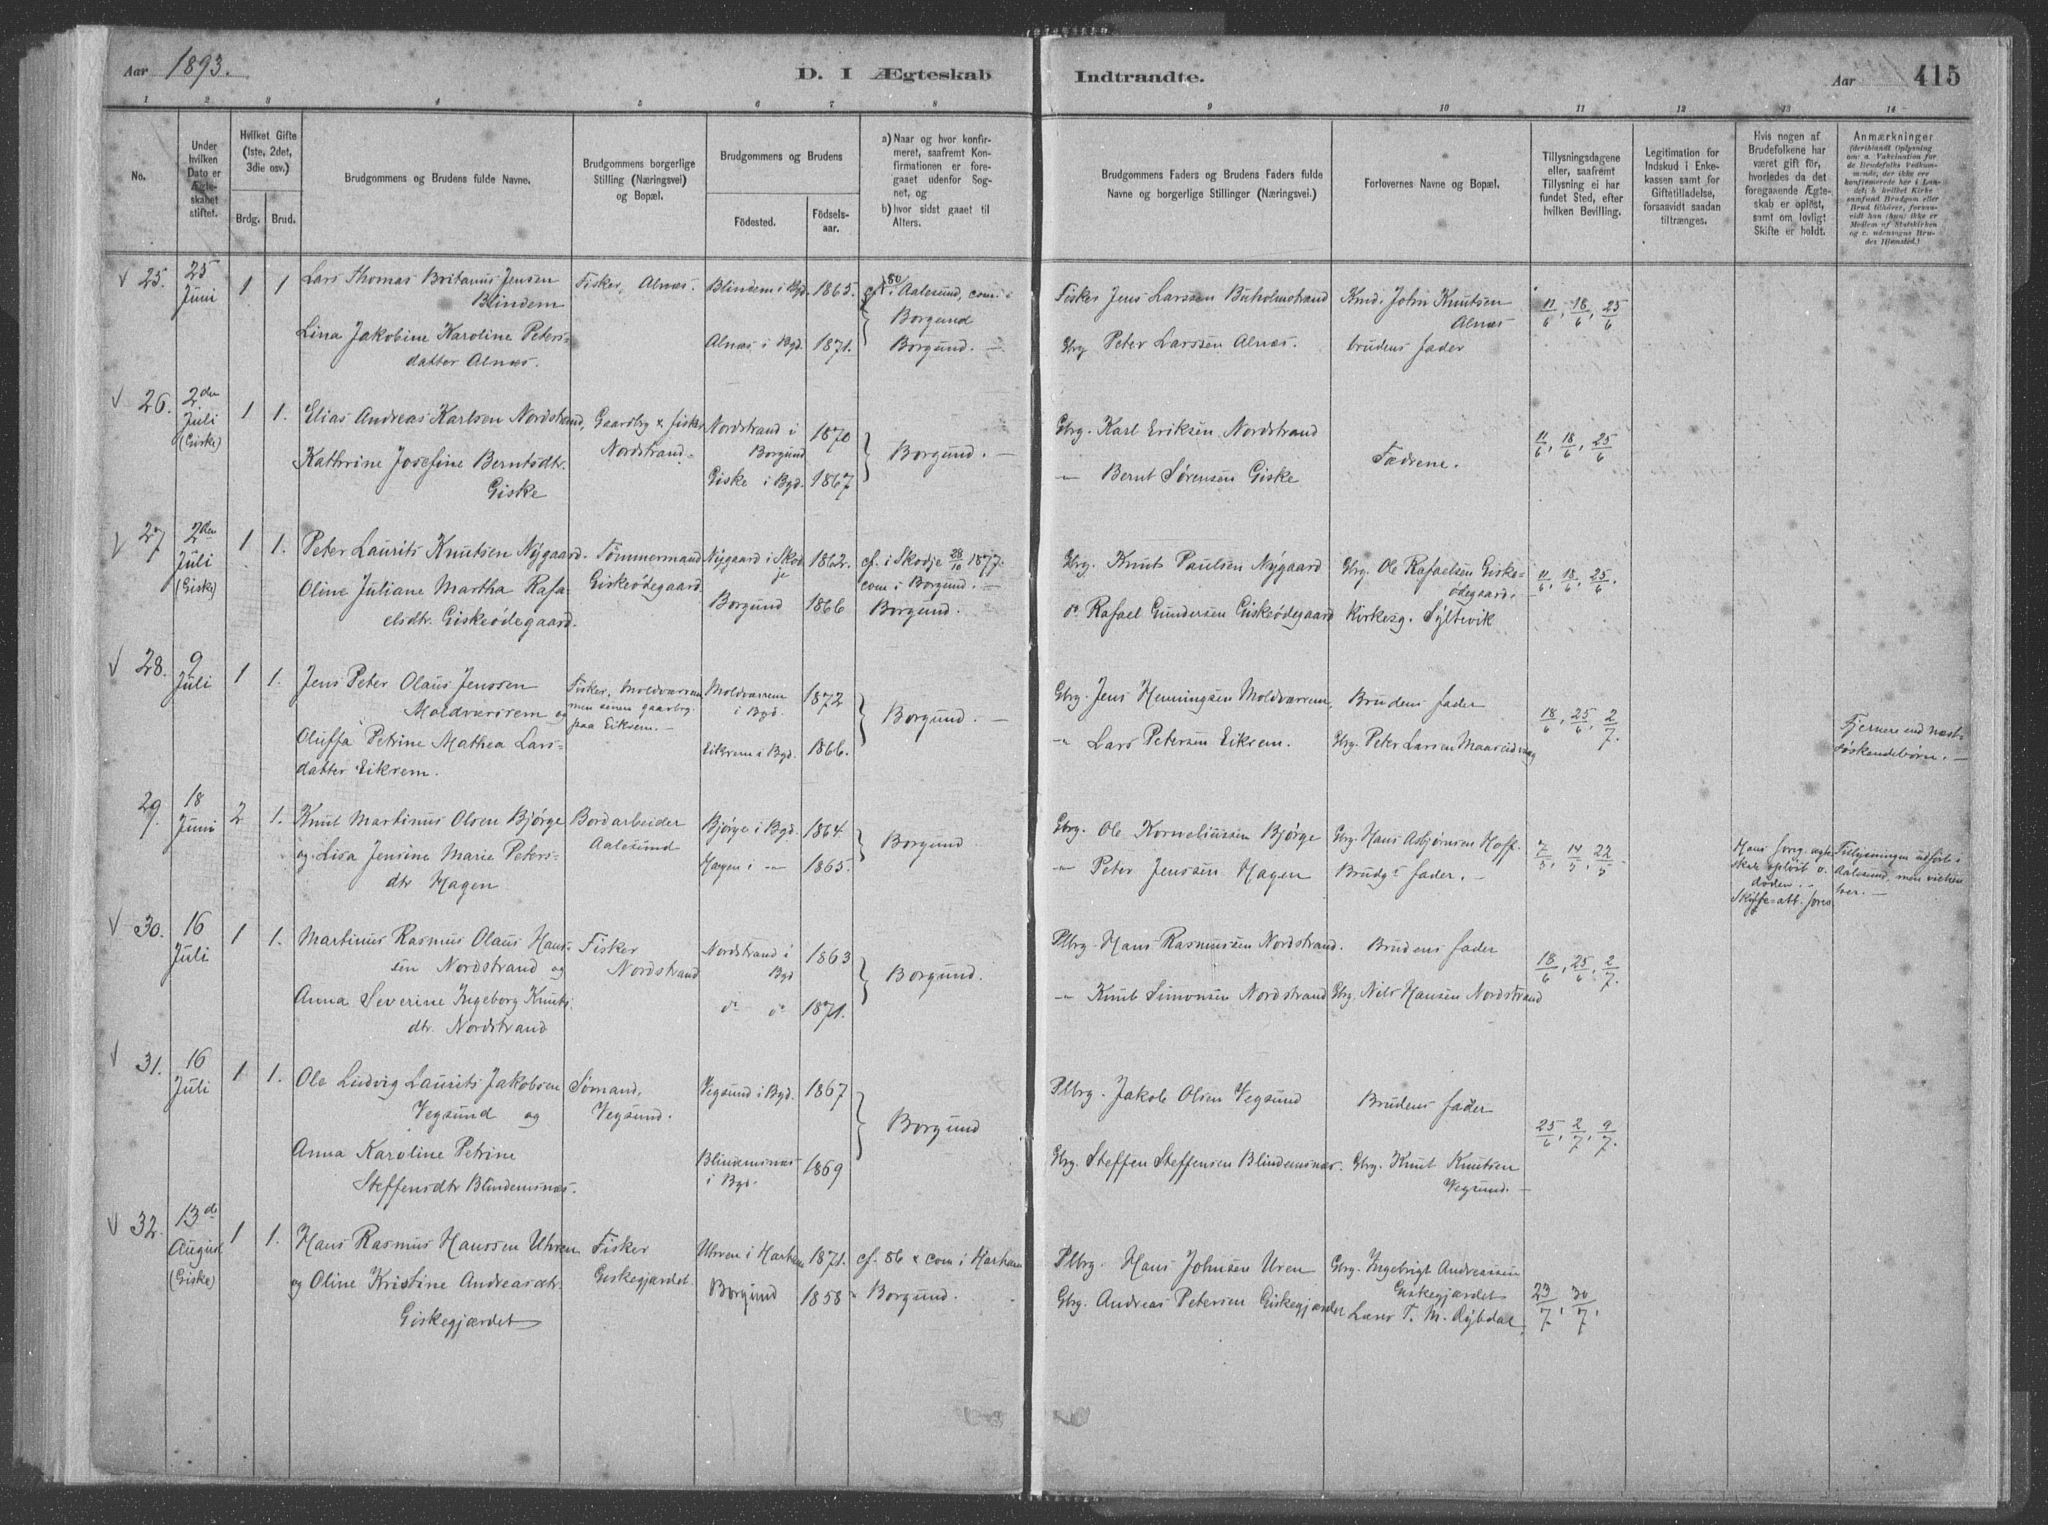 Aar 1893.
D. I Ægteskab Indtraadte.
Aar 415
1 2 3 4 5 6 7 8 9 10 11 12 13 14
No.
Under hvilken Dato er Ægteskabet stiftet.
Hvilket Gifte (1ste, 2det, 3die osv.)
Brdg. Brud.
Brudgommens og Brudens fulde Navne.
Brudgommens borgerlige Stilling (Næringsvei) og Bopæl.
Brudgommens og Brudens
Fødested. Fødselsaar.
a) Naar og hvor konfirmeret, saafremt Konfirmationen er foregaaet udenfor Sognet, og
b) hvor sidst gaaet til Alters.
Brudgommens Faders og Brudens Faders fulde Navne og borgerlige Stillinger (Næringsvei.)
Forlovernes Navne og Bopæl.
Tillysningsdagene eller, saafremt Tillysning ei har fundet Sted, efter hvilken Bevilling.
Legitimation for Indskud i Enkekassen samt for Giftetilladelse, forsaavidt saadan tiltrænges.
Hvis nogen af Brudefolkene har været gift før, hvorledes da det foregaaende Ægteskab er opløst, samt om lovligt Skifte er holdt.
Anmærkninger (deriblandt Oplysning om: a. Vakcination for de Brudefolks Vedkommende, der ikke ere konfirmerede her i Landet; b. hvilket Kirkesamfund Brudgom eller Brud tilhører, forsaavidt han (hun) ikke er Medlem af Statskirken og c. udensogns Brudes Hjemsted.)
25. 25 Juni 1 1 Lars Thomas Britanus Jensen Blindem
Fisker, Alnæs. Blindem i Bgd. 1865. cf. 80 i Aalesund, com. i Borgund
Fisker Jens Larssen Buholmstrand Knud. John Knutsen Alnæs 11/6, 18/6, 25/6
Lina Jakobine Karoline Petersdatter Alnæs. Alnæs i Bgd. 1871. Borgund. —
Gbrg Peter Larssen Alnæs. brudens fader
26. 2den Juli (Giske) 1 1. Elias Andreas Karlsen Nordstrand,
Gaardbrg & fisker Nordstrand. Nordstrand i Borgund 1870 Borgund. —
Gbrg. Karl Eriksen Nordstrand Fædrene. 11/6, 18/6, 25/6
Kathrine Josefine Berntsdtr. Giske Giske i Bgd. 1867
— Bernt Sørensen Giske
27. 2den Juli (Giske) 1 1. Peter Laurits Knutsen Nygaard.
Tømmermand Giskeødegaard. Nygaard i Skodje 1862. cf. i Skodje 28/10 1877. com. i Borgund. —
Gbrg. Knut Paulsen Nygaard Gbrg. Ole Rafaelsen Giskeødegaard. 11/6, 18/6, 25/6.
Oline Juliane Martha Rafaelsdtr. Giskeødegaard. Borgund 1866 Borgund.
do Rafael Gundersen Giskeødegaard Kirkesg. Syltevik
28. 9 Juli 1 1. Jens Peter Olaus Jenssen Moldværsrem og
Fisker, Moldværrem men senere gaardbrg. paa Eiksem. — Moldværrem i Bgd. 1872 Borgund. —
Gbrg. Jens Henningsen Moldværrem, Brudens fader 18/6, 25/6, 2/7.
Oluffa Petrine Mathea Larsdatter Eikrem. Eikrem i Bgd. 1866.
— Lars Petersen Eikrem. Gbrg. Peter Larsen
Fjernere end næstsøskendebørn. —
29. 18 Juni 2 1. Knut Martinus Olsen Bjørge
Bordarbeider Aalesund Bjørge i Bgd. 1864 Borgund
Gbrg. Ole Korneliussen Bjørge Gbrg. Hans Asbjørnsen Hoff. 7/5, 14/5, 22/5
og Lisa Jensine Marie Petersdtr Hagen Hagen i — 1865.
— Peter Jenssen Hagen Brudgs fader. —
Hans forrig. ægteskab opløst v. døden. — Skifte-att. forev.
Tillysningen udført i Aalesund, men vielsen her. —
30. 16 Juli 1 1. Martinus Rasmus Olaus Hanssen Nordstrand og
Fisker Nordstrand Nordstrand i Bgd 1863 Borgund.
Plbrg. Hans Rasmussen Nordstrand. Brudens fader 18/6, 25/6, 2/7.
Anna Severine Ingeborg Knutsdtr. Nordstrand do do 1871.
— Knut Simonsen Nordstrand Gbrg. Nils Hansen Nordstrand
31. 16 Juli 1 1. Ole Ludvig Laurits Jakobsen Vegsund og
Sømand, Vegsund. Vegsund i Bgd. 1867 Borgund
Plbrg. Jakob Olsen Vegsund Brudens fader 25/6, 2/7, 9/7.
Anna Karoline Petrine Steffensdtr Blindemsnæs. Blindemsnæs i Bgd. 1869
Gbrg. Steffen Steffensen Blindemsnæs. Gbrg. Knut Knutsen Vegsund. —
32. 13de August (Giske) 1 1. Hans Rasmus Hanssen Uhren
Fisker Giskegjærdet. Uhren i Harham 1871. cf. 86 & com i Harham
Plbrg. Hans Johnsen Uren Gbrg. Ingebrigt Andreassen Giskegjærdet 23/7, 30/7,
og Oline Kristine Andreasdtr. Giskegjærdet Borgund 1858 Borgund.
Gbrg. Andreas Petersen Giskegjærdet Lærer T. M. Dybdal,